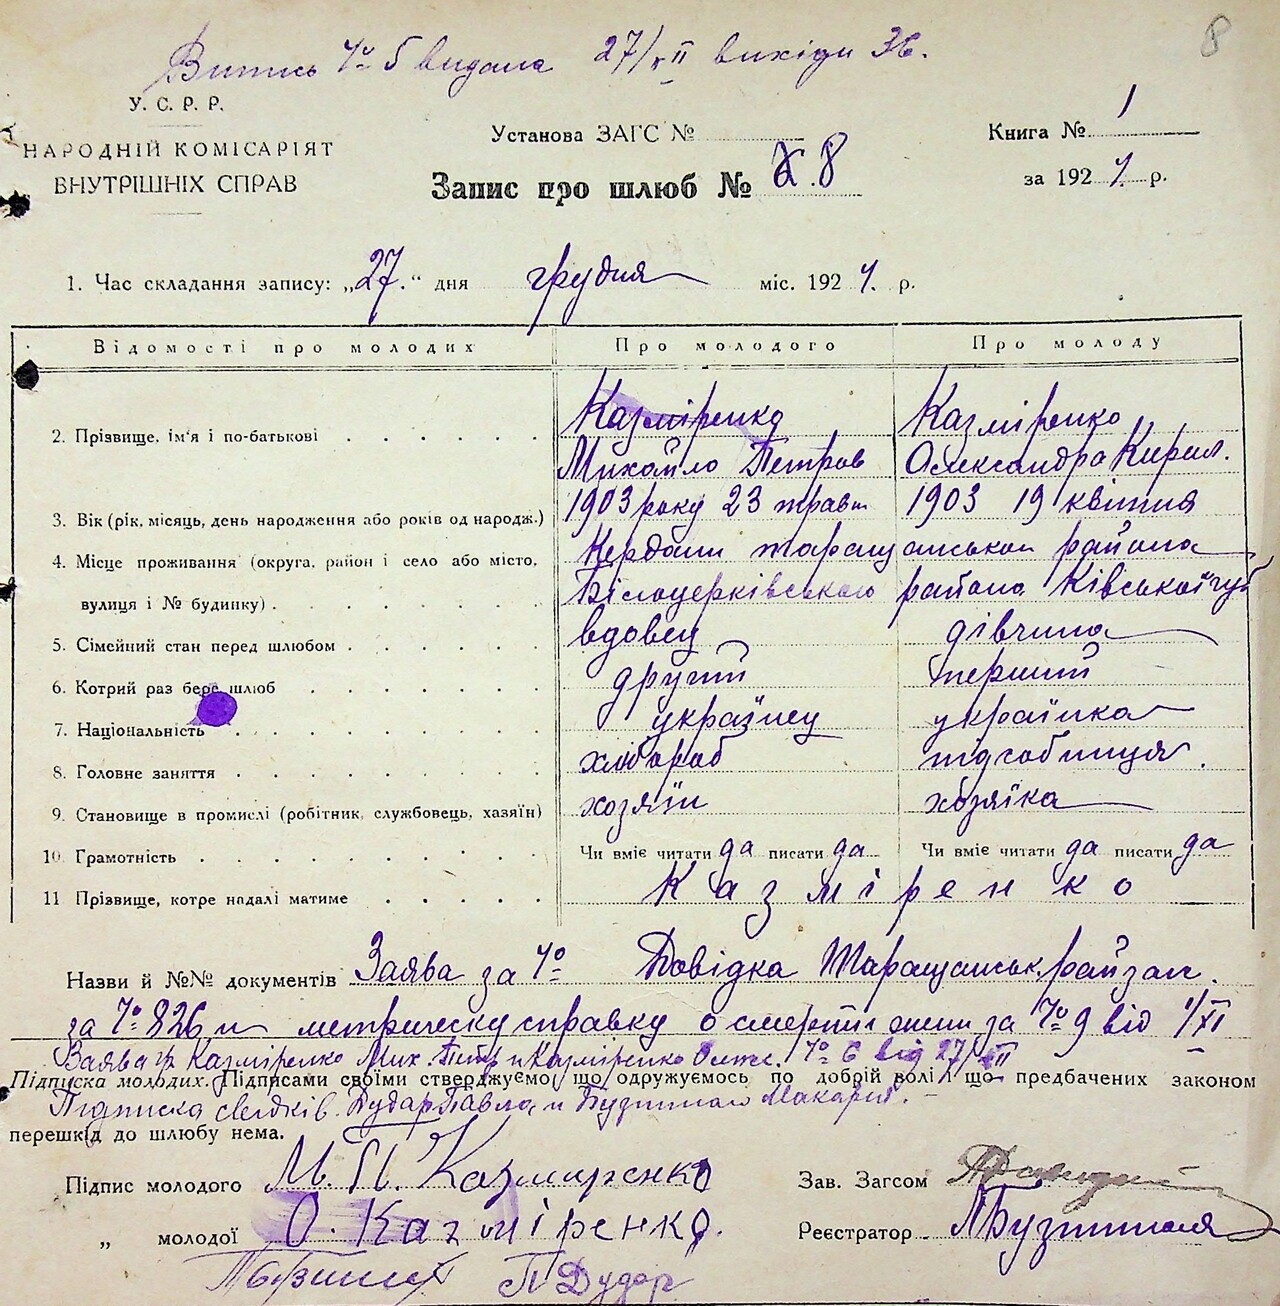 8
Витись № 5 видана 27/VII
У. С. Р. Р.
НАРОДНІЙ КОМІСАРІЯТ
ВНУТРІШНІХ СПРАВ
Установа ЗАГС №
Запис про шлюб № 8
Книга № 1
за 1924 р.
1. Час складання запису: „27.“ дня грудня міс. 1924. р.
Відомості про молодих Про молодого Про молоду
2. Прізвище, ім'я і по-батькові Казміренко Казміренко
Михайло Петров Олександра Кирил.
3. Вік (рік, місяць, день народження або років од народж.) 1903 року 23 травн 1903 19 квітня
4. Місце проживання (округа, район і село або місто, Кердани таращанськой района
вулиця і № будинку) Білоцерківського района Ківськой губ
5. Сімейний стан перед шлюбом вдовец дівчина
6. Котрий раз бере шлюб другий перший
7. Національність українец українка
8. Головне заняття хлібороб підсобниця.
9. Становище в промислі (робітник, службовець, хазяїн) хозяїн хозяїка
10 Грамотність Чи вміє читати да писати да Чи вміє читати да писати да
11 Прізвище, котре надалі матиме Казміренко
Назви й №№ документів Заява за № Довідка Таращанськ.
за № 826, и метрическу справку о смерті жени за № 9 від 1/XI
Заява гр Казміренко Мих. Петр и Казміренко № 6 від 27/XII
Підписка молодих. Підписами своїми стверджуємо, що одружуємось по добрій волі і що предбачених законом
Підписка свідків. Дудар Павла и Макарія.
перешкід до шлюбу нема.
Підпис молодого М. П. Казмиренко
Зав. Загсом
„ молодої О. Казміренко.
Реєстратор
П Дудар